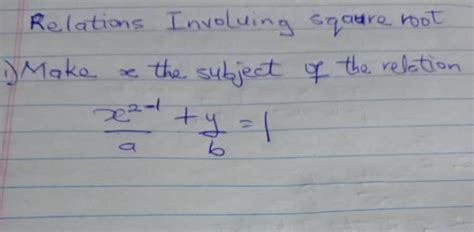 Relations Involving sqaure root
1) Make x the subject of the relation
x²⁻¹/a + y/b = 1